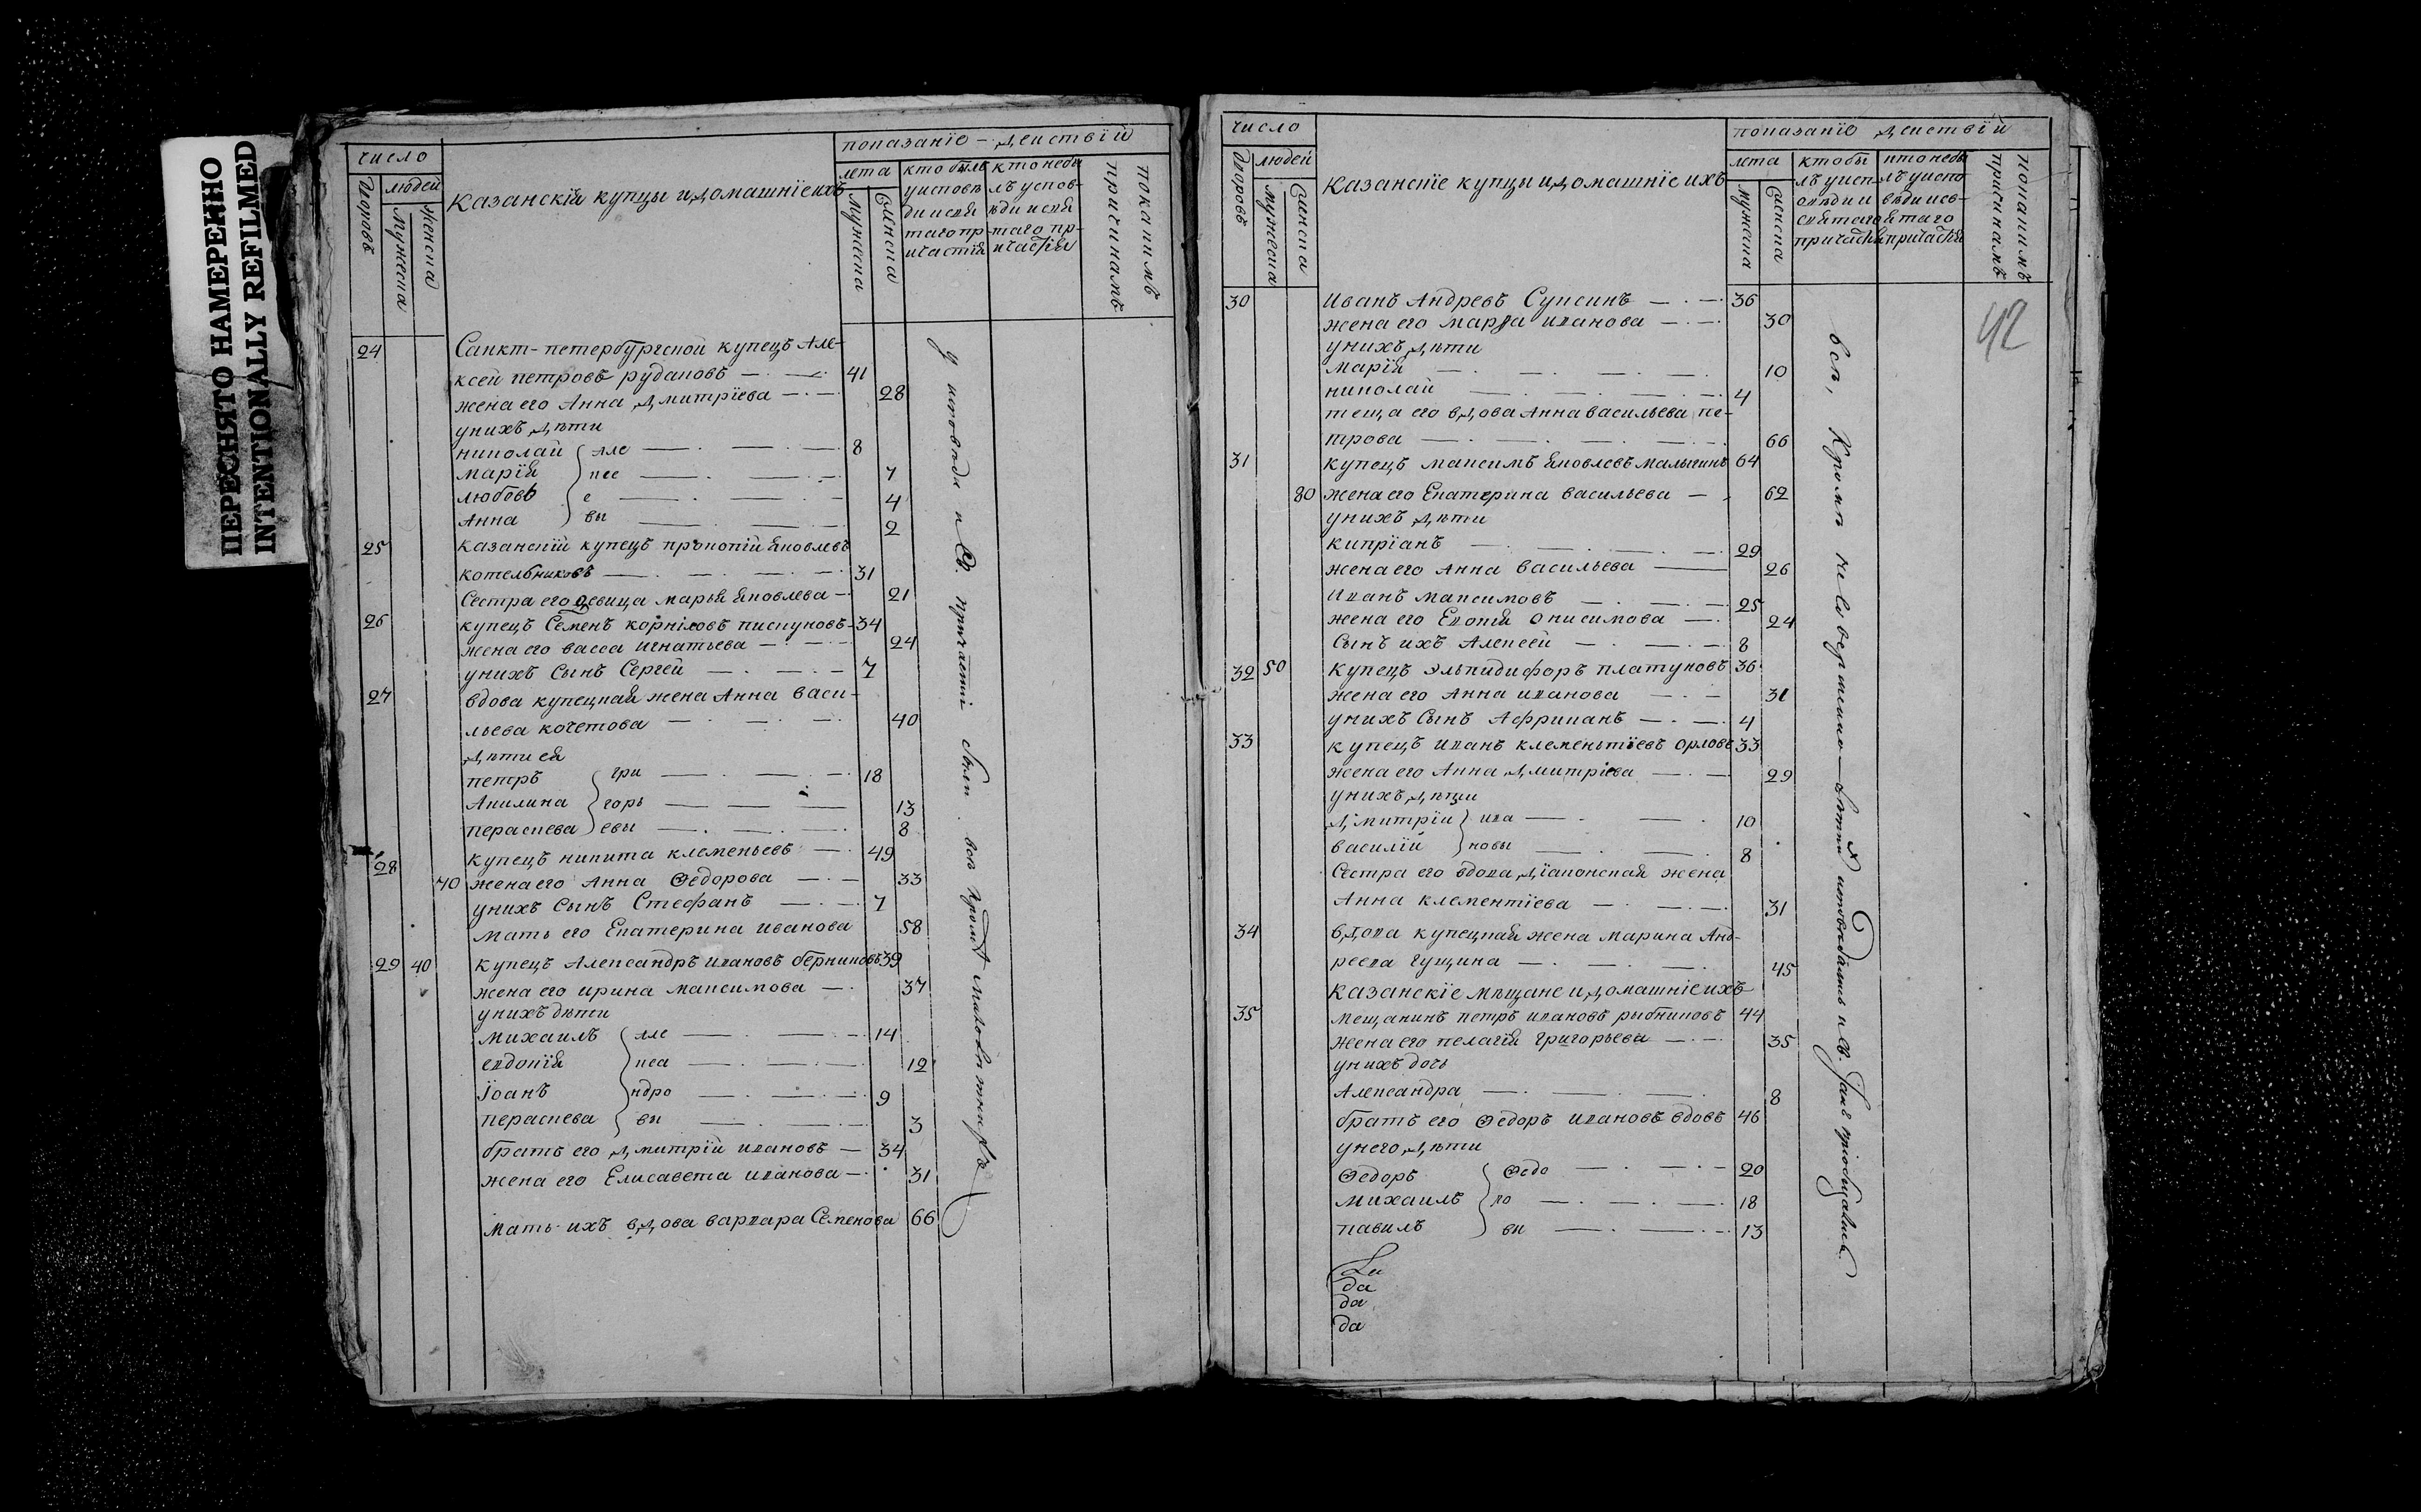 ПЕРЕСНЯТО НАМЕРЕННО
INTENTIONALLY REFILMED
число
показаніе – дѣиствій
Дворовъ
людей
Мужеска
Женска
Казанскія купцы и домашніе ихъ
лета
Мужеска
Женска
кто былъ
у исповѣ
ди и свя
таго пр
ичастія
кто небы
лъ у испов-
ѣди и свя
таго пр-
ичастія
по какимъ
причинамъ
24 Санкт-петербургской купецъ Але-
ксей петровъ рудаковъ 41
жена его Анна дмитріева 28
у нихъ дѣти
николай але 8
марія ксе 7
любовь е 4
Анна вы 2
25 казанскій купецъ прокопій яковлевъ
котельниковъ 31
Сестра его девица марья яковлева 21
26 купецъ Семенъ корниловъ пискуновъ 34
жена его васса игнатьева 24
у нихъ сынъ Сергей 7
27 вдова купецкая жена Анна васи-
льева кочетова 40
дѣти ея
петръ гри 18
Акилина горь 13
параскева евы 8
28 купецъ никита клеменьевъ 49
70 жена его Анна Ѳедорова 33
у нихъ сынъ Стефанъ 7
мать его Екатерина иванова 58
29 40 купецъ Александръ ивановъ берниковъ 39
жена его ирина максимова 37
у нихъ дѣти
михаилъ але 14
евдокія кса 12
Іоанъ ндро 9
параскева вы 3
братъ его дмитрій ивановъ 34
жена его Елисавета иванова 31
мать ихъ вдова варвара Семенова 66
число
показаніе дѣиствій
Дворовъ
людей
мужеска
Женска
казанскіе купцы и домашніе ихъ
лета
мужеска
Женска
кто бы
лъ у исп-
овѣди и
святаго
причастія
кто небы
лъ у испо
вѣди и св-
ятаго
причастія
по какимъ
причинамъ
42
30 Иванъ Андревъ Суксинъ 36
жена его Марѳа иванова 30
у нихъ дѣти
Марія 10
николай 4
теща его вдова Анна васильева пе-
трова 66
31 купецъ максимъ яковлевъ малыгинъ 64
80 жена его Екатерина васильева 62
у нихъ дѣти
кипріанъ 29
жена его Анна васильева 26
Иванъ максимовъ 25
жена его Евдокія Онисимова 24
Сынъ ихъ Алексей 8
32 50 купецъ Эльпидифоръ платуновъ 36
жена его Анна иванова 31
у нихъ сынъ Африканъ 4
33 купецъ иванъ клеменьтіевъ орловъ 33
жена его Анна дмитріева 29
у нихъ дѣти
дмитріи ива 10
василій новы 8
Сестра его вдова діаконская жена
Анна клементіева 31
34 вдова купецкая жена марина Анд-
реева гущина 45
казанскіе мѣщане и домашніе ихъ
35 мещанинъ петръ ивановъ рыбниковъ 44
жена его пелагія григорьева 35
у нихъ дочь
Александра 8
братъ его Ѳедоръ ивановъ вдовъ 46
у него дѣти
Ѳедоръ Ѳедо 20
михаилъ ро 18
павилъ вы 13
да
да
да